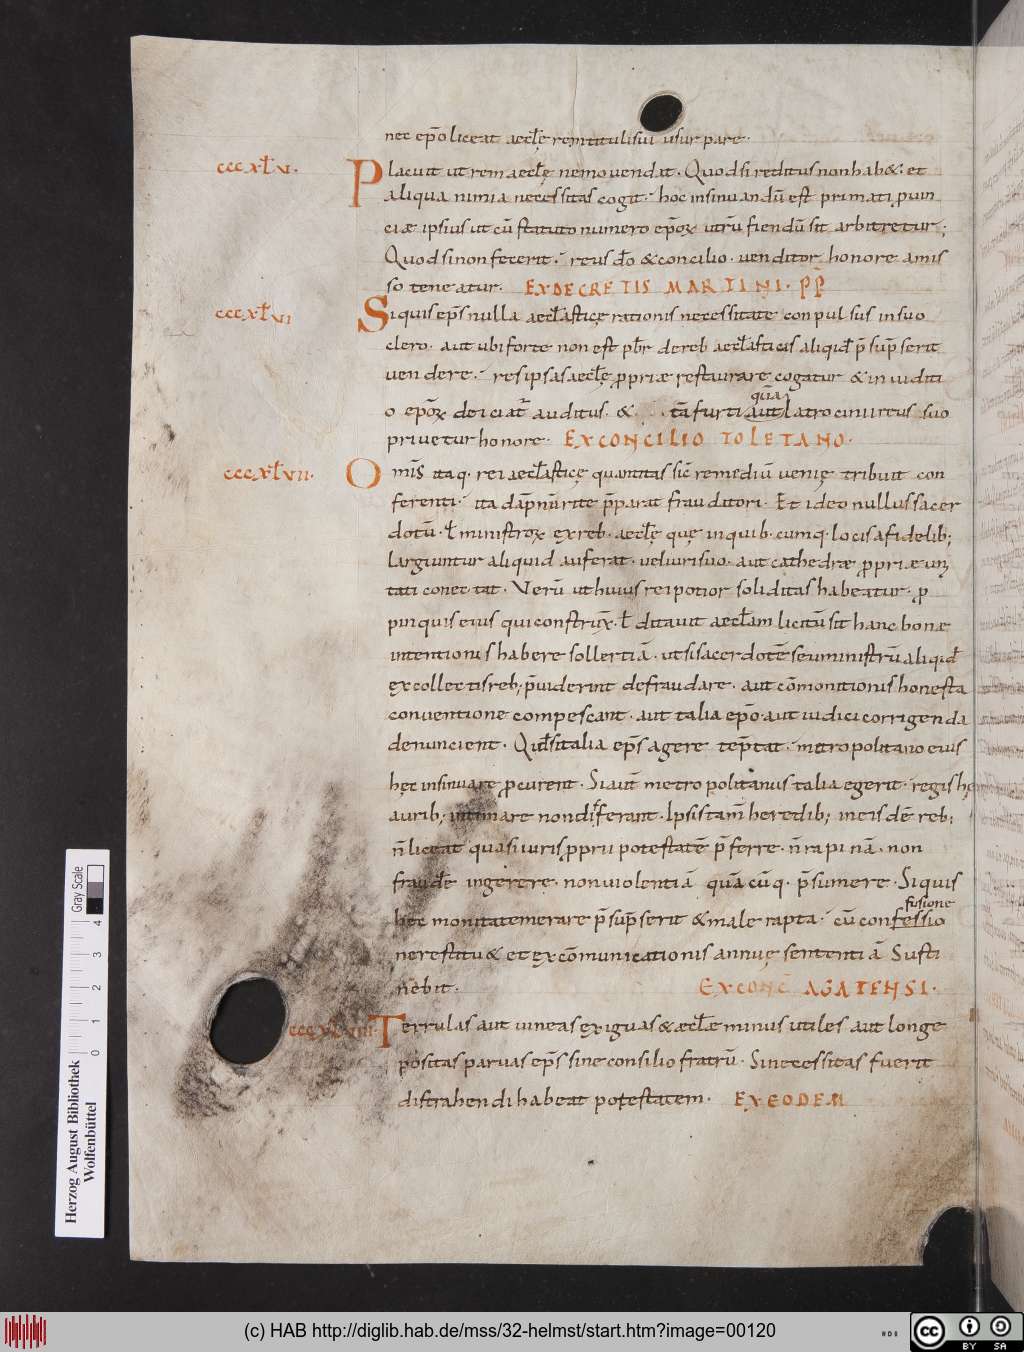 nec ep̄o liceat aecl̄ę rem tituli sui usurpare.
cccxl̄v. Placuit ut rem aecl̄ę nemo uendat. Quod si reditus non hab&. et
aliqua nimia necessitas cogit. hoc insinuandū est primati puin
ciæ ipsius ut cū statuto numero ep̄oꝝ utrū fiendū sit arbitretur;
Quod si non fecerit. reus dō & concilio. uenditor honore amis
so teneatur. EX DECRETIS MARTINI. PP̄
cccxl̄vi Si quis ep̄s nulla aecl̄asticę rationis necessitate conpulsus in suo
clero. aut ubi forte non est pb̄r de reb aecl̄asticis aliqid p̄sūpserit
uendere. res ipsas aecl̄ę ppriæ restaurare cogatur & in iuditi
o ep̄oꝝ deiciat auditus. & tā furti aut latrocinii reus suo
quā
priuetur honore. EX CONCILIO TOLETANO.
cccxl̄vii. Omīs itaq. rei aecl̄asticę quantitas sic̄ remediū uenię tribuit con
ferenti. ita dāpnū rite p̄parat frauditori. Et ideo nullus sacer
dotū. l̄ ministroꝝ ex reb. aecl̄ę quę in quib. cumq. locis a fidelib;
larguntur aliquid auferat. uel iuri suo. aut cathedræ ppriæ uni
tati conectat. Verū ut huius rei potior soliditas habeatur. p
pinquis eius qui construx̄. l̄ ditauit aecl̄am licitū sit hanc bonæ
intentionis habere sollertiā. ut si sacerdotē seu ministrū aliqid
ex collectis reb; p̄uiderint defraudare. aut cōmonitionis honesta
conuentione compescant. aut talia ep̄o aut iudici corrigenda
denuncient. Qid̄ si talia ep̄s agere tēptat. metropolitano eius
hęc insinuare pcurent. Si aut̄ metropolitanus talia egerit. regis hęc
aurib; intimare non differant. Ipsis tam̄ heredib; in eisdē reb;
n̄ liceat quasi iuris pprii potestatē p̄ferre. n̄ rapinā. non
fraudē ingerere. non uiolentiā quācūq. p̄sumere. Si quis
fusione
hęc monita temerare p̄sūpserit & male rapta. cū confessio
ne restitu& et excōmunicationis annuę sententiā susti
nebit. EX CONC̄ AGATENSI.
cccxl̄viii. Terrulas aut uineas exiguas & aecl̄æ minus utiles aut longe
positas paruas ep̄s sine consilio fratrū. Si necessitas fuerit
distrahendi habeat potestatem. EX EODEM
Gray Scale
0 1 2 3 4
Herzog August Bibliothek
Wolfenbüttel
(c) HAB http://diglib.hab.de/mss/32-helmst/start.htm?image=00120
cc BY SA